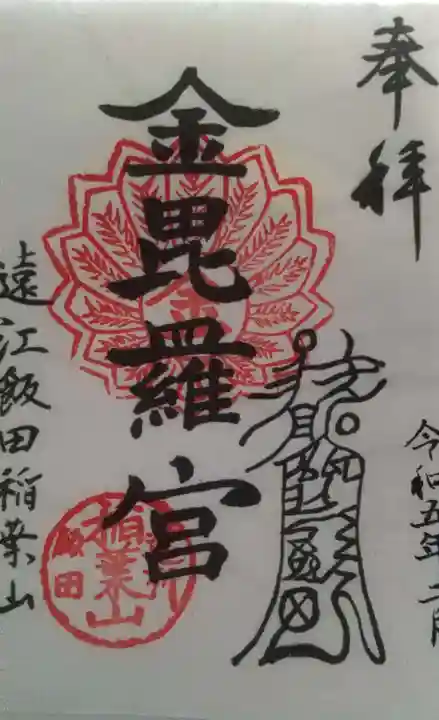 奉拝
令和五年二月
金毘羅宮
金
遠江飯田稲葉山
稲葉山
飯田